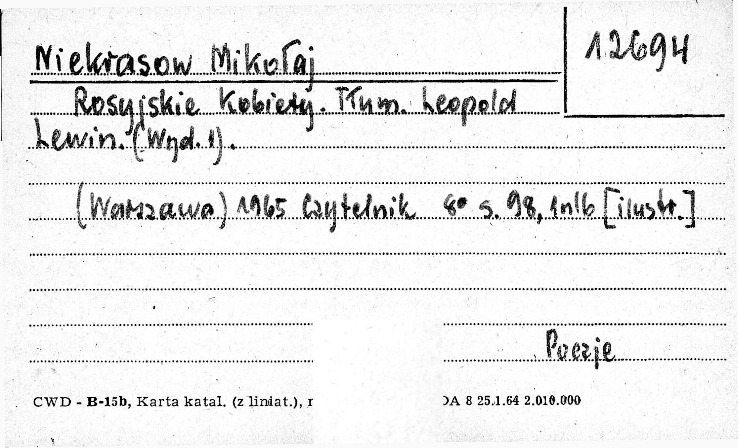 12694
Niekrasow Mikołaj
Rosyjskie Kobiety. Tłum. Leopold
Lewin. (Wyd. 1).
(Warszawa) 1965 Czytelnik 8° s. 98, 1nlb [ilustr.]
Poezje
CWD - B-15b, Karta katal. (z liniat.), r DA 8 25.1.64 2.010.000